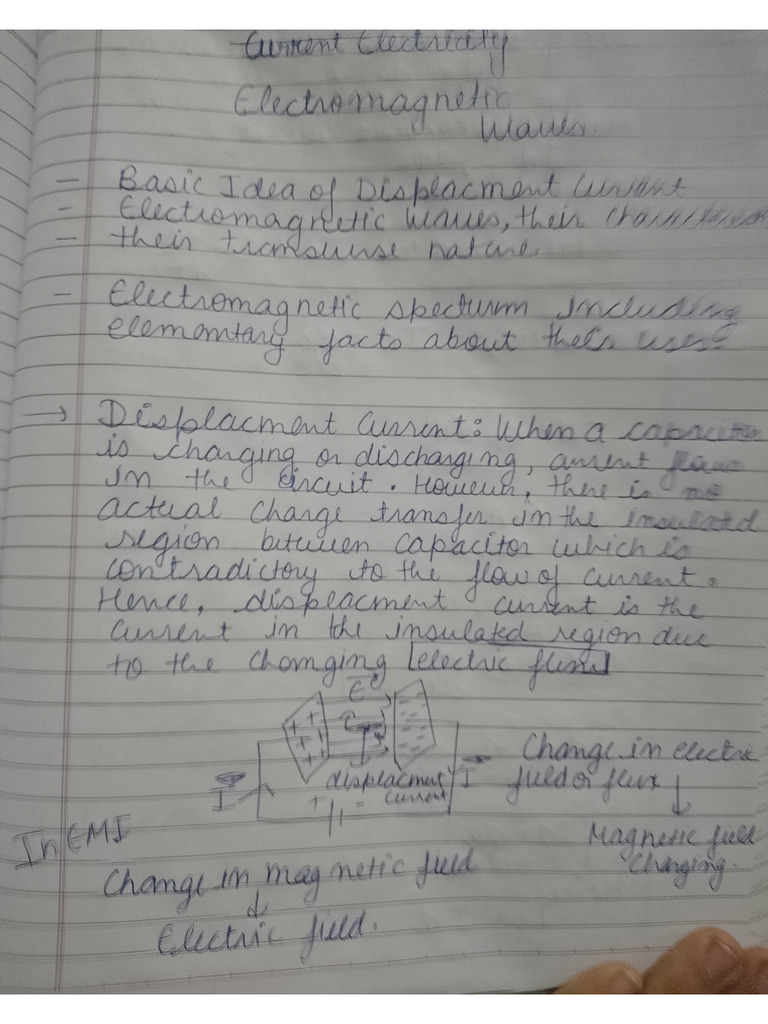 Current Electricity
Electromagnetic
Waves
- Basic Idea of Displacment Current
- Electromagnetic Waves, their
- their transverse nature.
- Electromagnetic specturm including
elementary facts about their uses
→ Displacment Current: When a capacitor
is charging or discharging, current flows
in the circuit. However, there is no
actual charge transfer in the insulated
region between capacitor which is
contradictory to the flow of current.
Hence, displacment current is the
current in the insulated region due
to the changing electric flux
E
+ + + + + +
- - - - - -
I
displacment
current
I
+ -
Change in electric
field or flux
↓
Magnetic field
Changing.
In EMI
Change in magnetic field
↓
Electric field.